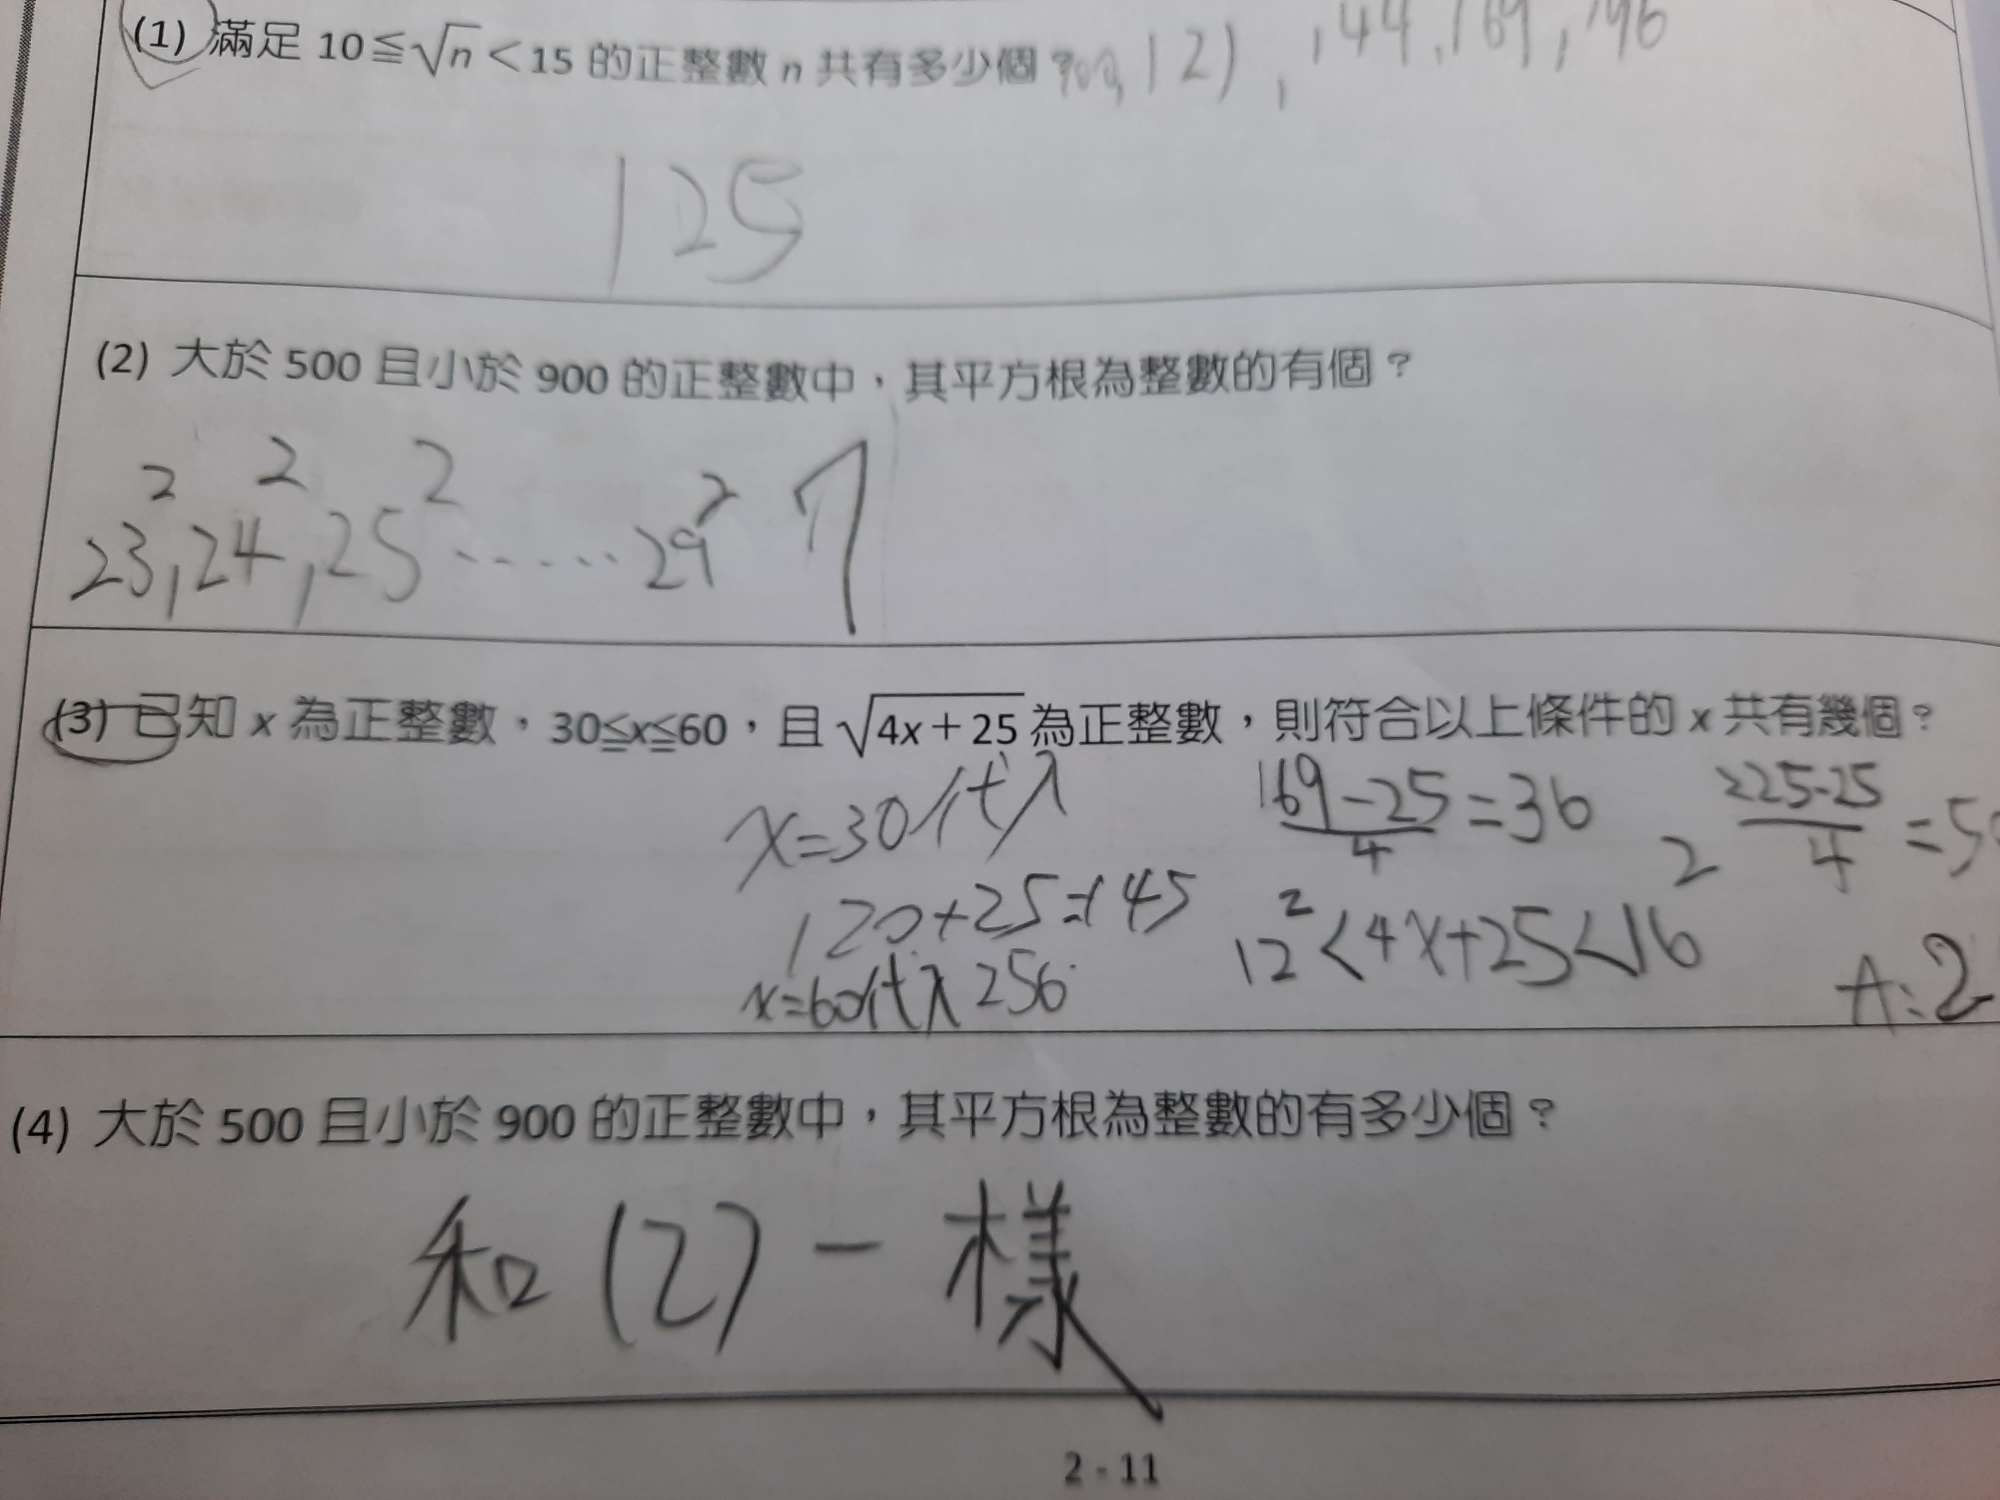 (1) 滿足 10≦√n＜15 的正整數 n 共有多少個？ 100, 121, 144, 169, 196
125
(2) 大於 500 且小於 900 的正整數中，其平方根為整數的有個？
23², 24², 25² …… 29² 7
(3) 已知 x 為正整數，30≦x≦60，且 √4x＋25 為正整數，則符合以上條件的 x 共有幾個？
x=30代入
120+25=145
x=60代入 256
169-25/4=36
12²<4x+25<16²
225-25/4=50
A:2
(4) 大於 500 且小於 900 的正整數中，其平方根為整數的有多少個？
和(2)一樣
2 - 11